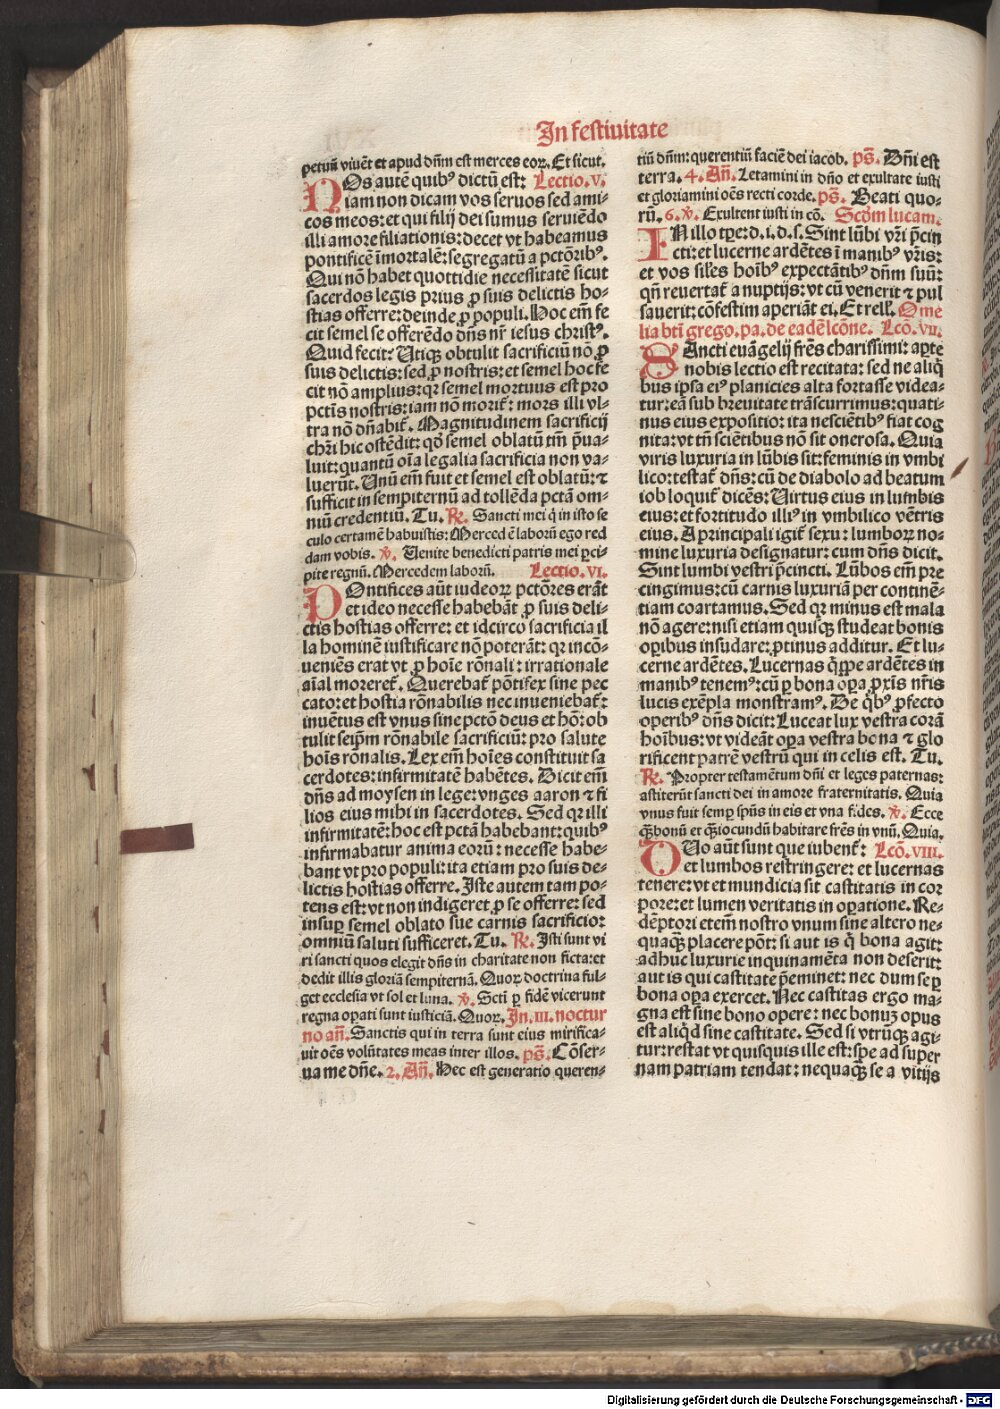 In festiuitate
petuū viuēt et apud dn̄m est merces eoꝝ. Et sicut.
NOs autē quibꝰ dictū est: Lectio.V.
iam non dicam vos seruos sed ami-
cos meos: et qui filij dei sumus seruiēdo
illi amore filiationis: decet vt habeamus
pontificē īmortalē: segregatū a pctōribꝰ.
Qui nō habet quottidie necessitatē sicut
sacerdos legis prius ꝓ suis delictis ho-
stias offerre: deinde ꝓ populi. Hoc em̄ fe
cit semel se offerēdo dn̄s nr̄ iesus christꝰ.
Quid fecit: Utiqꝫ obtulit sacrificiū nō ꝓ
suis delictis: sed ꝓ nostris: et semel hoc fe
cit nō amplius: qꝛ semel mortuus est pro
pctīs nostris: iam nō morit᷑: mors illi vl-
tra nō dn̄abit᷑. Magnitudinem sacrificij
chr̄i hic ostēdit: qd̓ semel oblatū tm̄ p̄ua-
luit: quantū oīa legalia sacrificia non va-
luerūt. Unū em̄ fuit et semel est oblatū: ⁊
sufficit in sempiternū ad tollēda pctā om-
niū credentiū. Tu. ℟. Sancti mei q̇ in isto se
culo certamē habuistis: Merced ē laborū ego red
dam vobis. ℣. Uenite benedicti patris mei ꝑci-
pite regnū. Mercedem laborū. Lectio.VI.
POntifices aūt iudeoꝝ pctōres erāt
et ideo necesse habebāt ꝓ suis deli-
ctis hostias offerre: et idcirco sacrificia il
la hominē iustificare nō poterāt: qꝛ incō-
ueniēs erat vt ꝓ hoīe rōnali: irrationale
aīal moreret᷑. Querebat᷑ pōtifex sine pec
cato: et hostia rōnabilis nec inueniebat᷑:
inuētus est vnus sine pctō deus et hō: ob
tulit seip̄m rōnabile sacrificiū: pro salute
hoīs rōnalis. Lex em̄ hoīes constituit sa
cerdotes: infirmitatē habētes. Dicit em̄
dn̄s ad moysen in lege: vnges aaron ⁊ fi
lios eius mihi in sacerdotes. Sed qꝛ illi
infirmitatē: hoc est pctā habebant: quibꝰ
infirmabatur anima eorū: necesse habe-
bant vt pro populi: ita etiam pro suis de-
lictis hostias offerre. Iste autem tam po-
tens est: vt non indigeret ꝓ se offerre: sed
insuꝑ semel oblato sue carnis sacrificio:
omniū saluti sufficeret. Tu. ℟. Isti sunt vi
ri sancti quos elegit dn̄s in charitate non ficta: et
dedit illis gloriā sempiternā. Quoꝝ doctrina ful-
get ecclesia vt sol et luna. ℣. Sctī ꝑ fidē vicerunt
regna oꝑati sunt iusticiā. Quoꝝ. In.III.noctur
no an̄. Sanctis qui in terra sunt eius mirifica-
uit oēs volūtates meas inter illos. ps̄. Cōser-
ua me dn̄e. 2. An̄. Hec est generatio queren-
tiū dn̄m: querentiū faciē dei iacob. ps̄. Dn̄i est
terra. 4. An̄. Letamini in dn̄o et exultate iusti
et gloriamini oēs recti corde. ps̄. Beati quo-
rū. 6. ℣. Exultent iusti in cō. Scd̓m lucam.
IN illo tꝑe: d. i. d. s. Sint lūbi vr̄i p̄cin
cti: et lucerne ardētes ī manibꝰ vr̄is:
et vos sil̓es hoībꝰ expectātibꝰ dn̄m suū:
qn̄ reuertat᷑ a nuptijs: vt cū venerit ⁊ pul
sauerit: cōfestim aperiāt ei. Et rel̓. Ome
lia bt̄i grego. pa. de eadē lcōne. Lcō.VII.
SAncti euāgelij fr̄es charissimi: aꝑte
nobis lectio est recitata: sed ne aliq
bus ip̄sa eiꝰ planicies alta fortasse videa-
tur: eā sub breuitate trāscurrimus: quati-
nus eius expositio: ita nesciētibꝰ fiat cog
nita: vt tn̄ sciētibus nō sit onerosa. Quia
viris luxuria in lūbis sit: feminis in vmbi
lico: testat᷑ dn̄s: cū de diabolo ad beatum
iob loquit᷑ dicēs: Uirtus eius in lumbis
eius: et fortitudo illiꝰ in vmbilico vētris
eius. A principali igit᷑ sexu: lumboꝝ no-
mine luxuria designatur: cum dn̄s dicit.
Sint lumbi vestri p̄cincti. Lūbos em̄ pre
cingimus: cū carnis luxuriā per continē-
tiam coartamus. Sed qꝛ minus est mala
nō agere: nisi etiam quisqꝫ studeat bonis
oꝑibus insudare: ꝓtinus additur. Et lu-
cerne ardētes. Lucernas q̄ppe ardētes in
manibꝰ tenemꝰ: cū ꝑ bona oꝑa ꝓxīs nr̄is
lucis exēpla monstramꝰ. De q̇bꝰ ꝓfecto
operibꝰ dn̄s dicit: Luceat lux vestra corā
hoībus: vt videāt oꝑa vestra bona ⁊ glo
rificent patrē vestrū qui in celis est. Tu.
℟. Propter testamētum dn̄i et leges paternas:
astiterūt sancti dei in amore fraternitatis. Quia
vnus fuit semꝑ sp̄us in eis et vna fides. ℣. Ecce
q̄ꝫ bonū et q̄ꝫ iocundū habitare fr̄es in vnū. Quia.
DUo aūt sunt que iubent᷑: Lcō.VIII.
et lumbos restringere: et lucernas
tenere: vt et mundicia sit castitatis in cor
pore: et lumen veritatis in oꝑatione. Re-
dēptori etem̄ nostro vnum sine altero ne-
quaqꝫ placere pōt: si aut is q̇ bona agit:
adhuc luxurie inquinamēta non deserit:
aut is qui castitate p̄eminet: nec dum se ꝑ
bona oꝑa exercet. Nec castitas ergo ma-
gna est sine bono opere: nec bonuꝫ opus
est aliqd̓ sine castitate. Sed si vtrūqꝫ agi-
tur: restat vt quisquis ille est: spe ad super
nam patriam tendat: nequaqꝫ se a vitijs
Digitalisierung gefördert durch die Deutsche Forschungsgemeinschaft - DFG